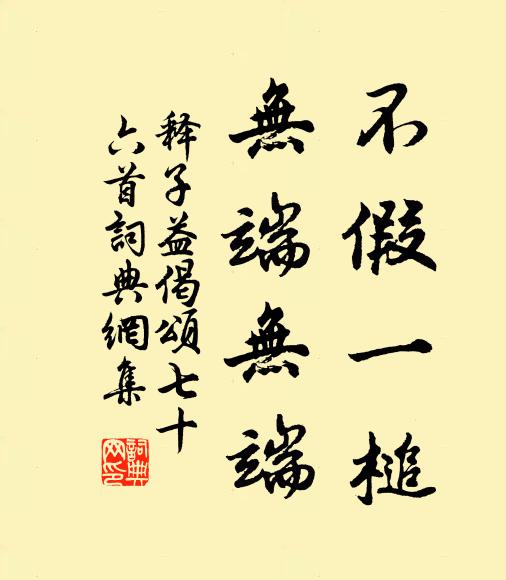 不假一槌
無端無端
释子益偈頌七十
六首詞典網集
詞典网印